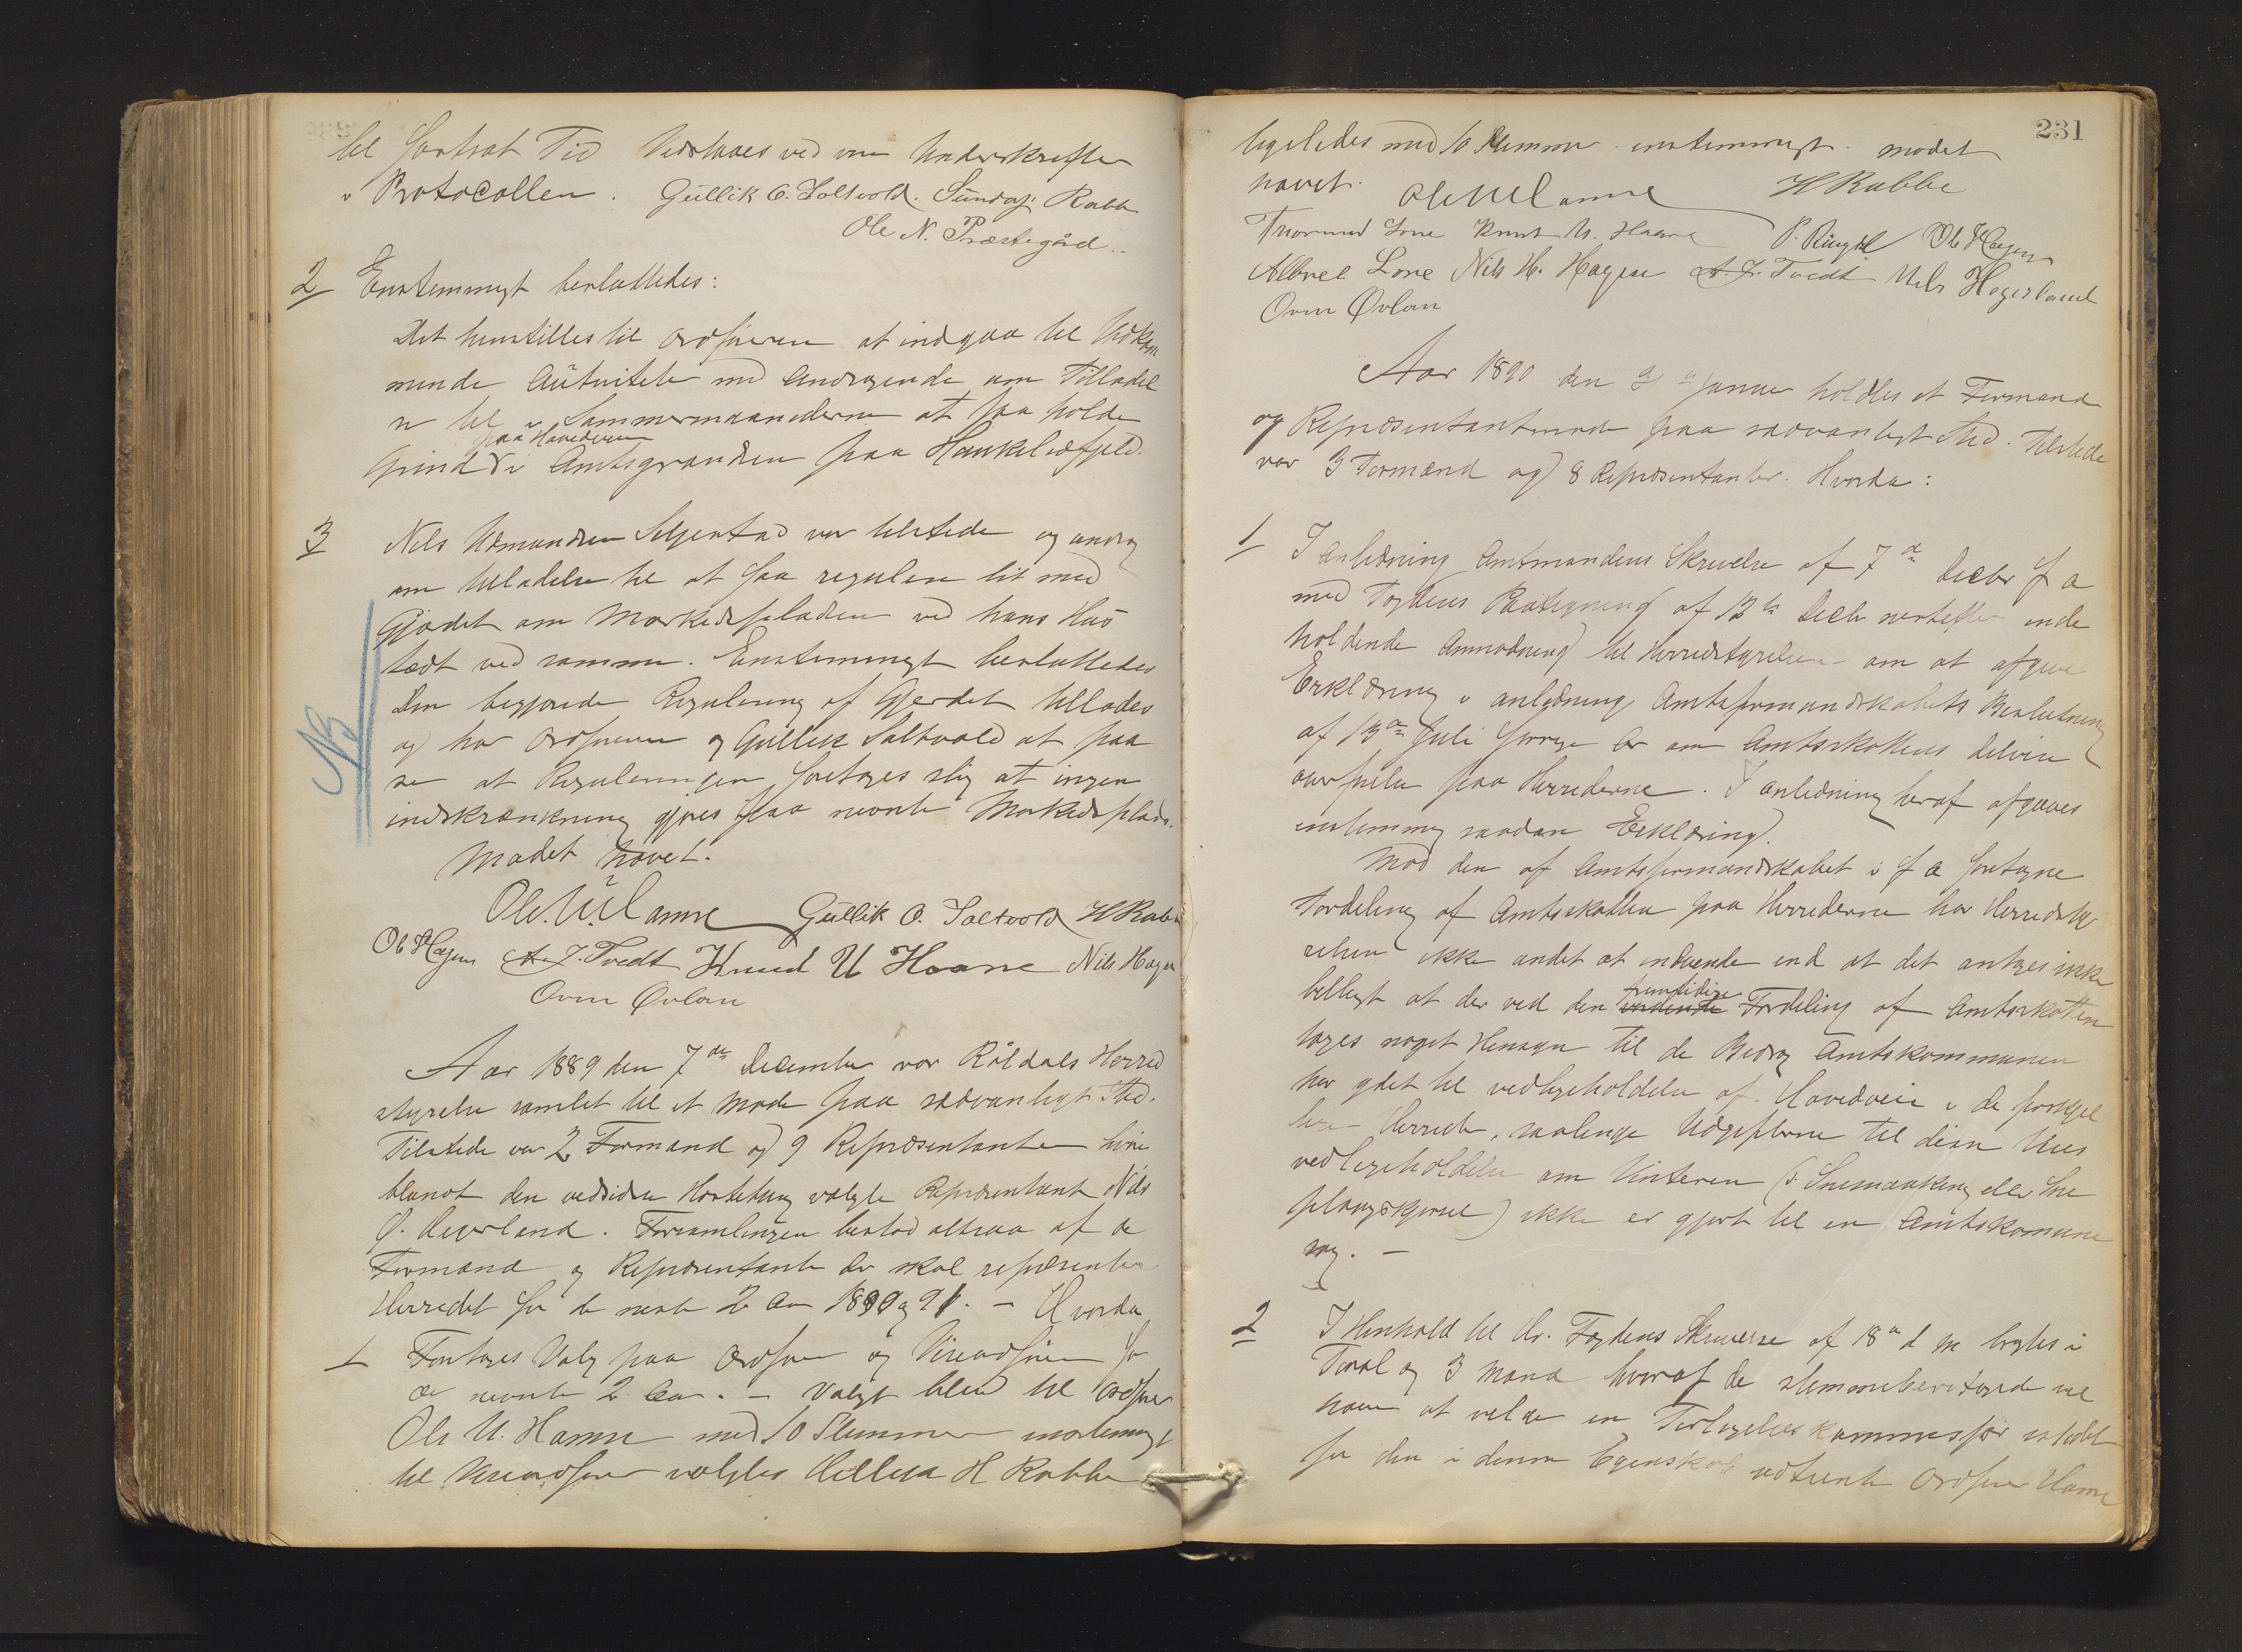 til fortsat Tid Vedtaaes ved vore Underskrifter
i Protocollen. Gullik O. Saltvold. Rabbe
Ole N. Præstegård
2 Enstemmigt besluttedes:
Det henstilles til Ordføreren at indgaa til Vedkom
mende Autoritet med Andragende om Tilladel
se til i Sommermaanederne at faa holde
paa Hovedveien
Grind i Amtsgrændsen paa Haukelidfjeld.
3 Nils Asmundsen Seljestad var tilstede og androg
om tilladelse til at faa regulere lit med
Gjærdet om Markedspladsen ved hans Hus
tædt ved samme. Enstemmigt besluttedes
Den begjærede Regulering af Gjerdet tillades
og har Ordføreren og Gullik Saltvold at paa
se at Reguleringen foretages slig at ingen
indskrænkning gjøres paa nævnte Markedsplads.
NB
Mødet hævet.
Ole U. Hamre Gullik O. Saltvold H Rabbe
Ob Hagen A. J. Tvedt Knud U Haare Nils Hagen
Orm Øvland
Aar 1889 den 7de December var Röldals Herred
styrelse samlet til et Møde paa sædvanligt Sted.
Tilstede var 2 Formænd og 9 Repræsentanter hvori
blandt den ved sidste valgte Repræsentant Nils
Hegerland. Forsamlingen bestod altsaa af de
Formænd og Repræsentanter der skal repræsentere
Herredet for de næste 2 Aar 1890 og 91. – Hvorda
1 Foretoges Valg paa Ordfører og Viceordfører for
de nævnte 2 Aar. – Valgt blev til Ordfører
Ole U. Hamre med 10 Stemmer enstemmigt
til Viceordfører valgtes Helleik H Rabbe
231
ligeledes med 10 Stemmer enstemmigt. mødet
hævet.
Ole U Hamre H Rabbe
Thormod Lone Knut U. Haare P. Ringdal Ob Hagen
Albret Lone Nils H. Hagen A. J. Tvedt Nils Hegerland
Orm Øvland
Aar 1890 den Januar holdtes et Formand
og Repræsentantmøde paa sædvanligt Sted. Tilstede
var 3 Formænd og 8 Repræsentanter. Hvorda:
1 I anledning Amtmandens Skrivelse af 7de Decbr f a
med Fogdens Paategning af 12te Decbr næstefter inde
holdende Anmodning til Herredstyrelsen om at afgive
Erklæring i anledning Amtsformandskabets Beslutning
af 13de Juli forrige Ar om Amtsskattens
paa Herrederne. I anledning heraf afgaves
enstemmig saadan Erklæring.
Mod den af Amtsformandskabet i f a foretagne
Fordeling af Amtsskatten paa Herrederne har Herredsty
relsen ikke andet at indvende end at det antages ikke
fremtidige
billigt at der ved den Fordeling af Amtsskatten
tages noget Hensyn til de Bidrag Amtskommunen
har ydet til vedligeholdelse af Hovedveie i de forskjel
lige Herreder, saalenge Udgifterne til disse Veies
vedligeholdelse om Vinteren (v Snemaaking eller Sne
plougskjørsel) ikke er gjort til en Amtskomune
sag. –
2 I Henhold til Hr. Fogdens Skrivelse af 18de d m bragtes i
Forsl og 3 Mænd hvoraf de stemmeberettigede vil
have at velge en Forligelseskommissær istedet
for den i denne Egenskab udtrædte Ordfører Hamre